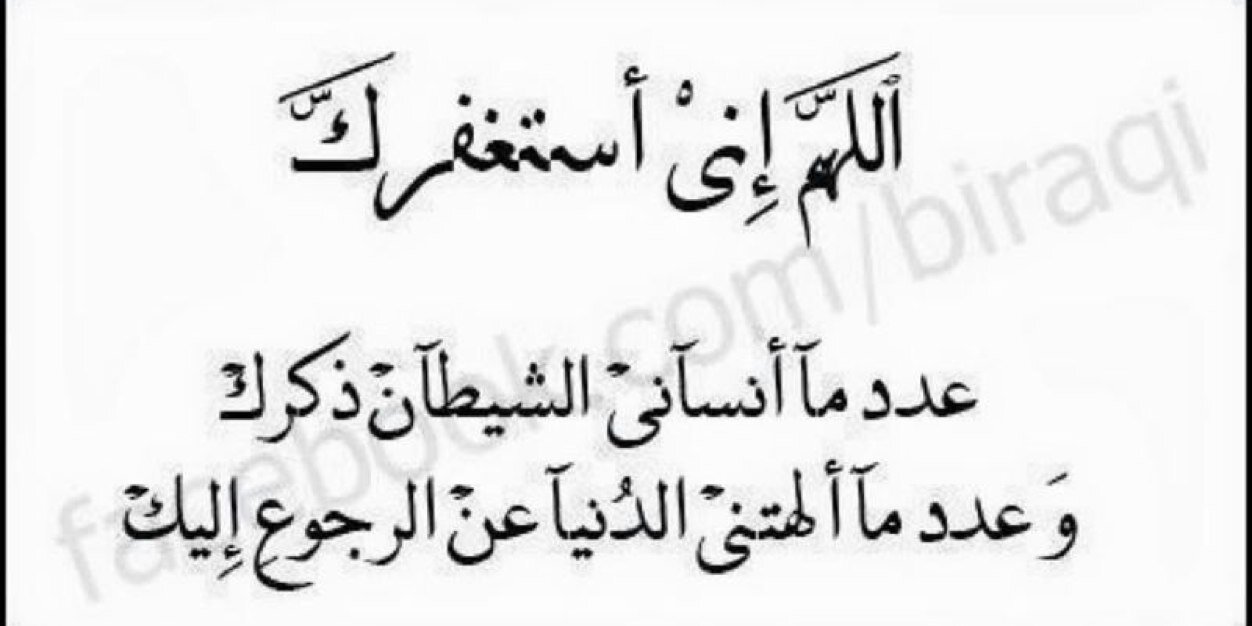 ٱللهمَّ إنىْ أستغفركَّ
عدد مآ أنسآنىْ الشيطآنْ ذكركْ
وَ عدد مآ ألهتنىْ الدُنيآ عنْ الرجوع إليكْ
facebook.com/biraqi